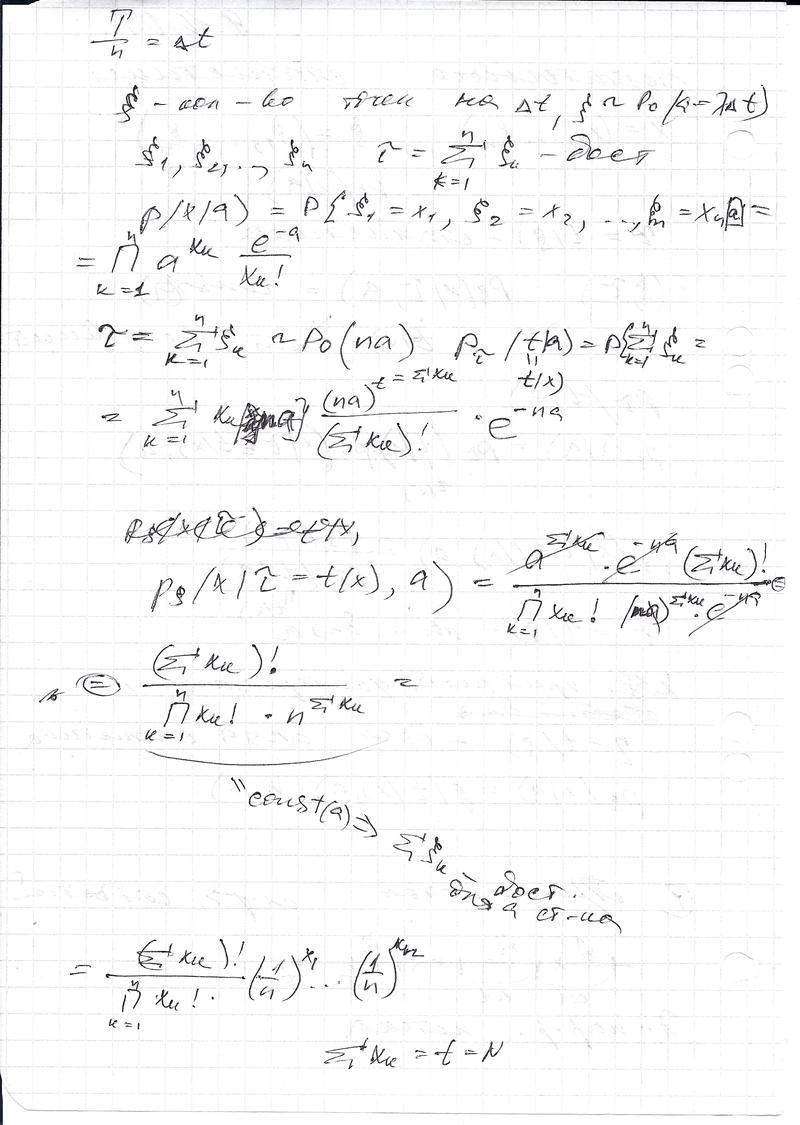 T/n = Δt
ξ - кол-во точек на Δt, ξ ~ Po(a = λΔt)
ξ₁, ξ₂, .., ξₙ τ = Σₖ₌₁ⁿ ξₖ - дост
p(x|a) = P{ξ₁ = x₁, ξ₂ = x₂, .., ξₙ = xₙ|a} =
= ∏ₖ₌₁ⁿ a^(xₖ) e^(-a)/xₖ!
τ = Σₖ₌₁ⁿ ξₖ ~ Po(na) p_τ(t|a) = P{Σₖ₌₁ⁿ ξₖ =
t(x)
= Σₖ₌₁ⁿ xₖ|a} (na)^(t = Σxₖ)/(Σxₖ)! · e^(-na)
p_ξ(x|τ = t(x), a) = a^(Σxₖ) · e^(-na) (Σxₖ)! / ∏ₖ₌₁ⁿ xₖ! (na)^(Σxₖ) · e^(-na) =
= (Σxₖ)! / ∏ₖ₌₁ⁿ xₖ! · n^(Σxₖ) =
"const(a) ⇒ Σξₖ - дост.
для a ст-ка
= (Σxₖ)! / ∏ₖ₌₁ⁿ xₖ! · (1/n)^(x₁) ... (1/n)^(xₙ)
Σxₖ = t = N